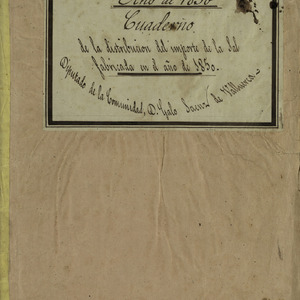 Año de 1850
Cuaderno
de la distribucion del importe de la Sal
fabricada en el año de 1850.
Diputado de la Comunidad, D. Galo Sainz de Villarica